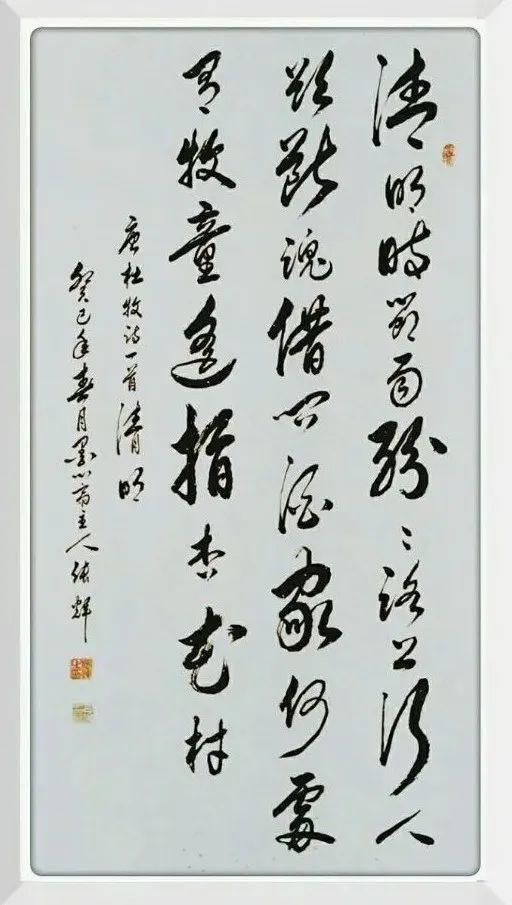 清明時節雨紛〻路上行人
欲斷魂借問酒家何處
有牧童遙指杏花村
唐杜牧詩一首清明
癸巳年春月墨心齋主人輝